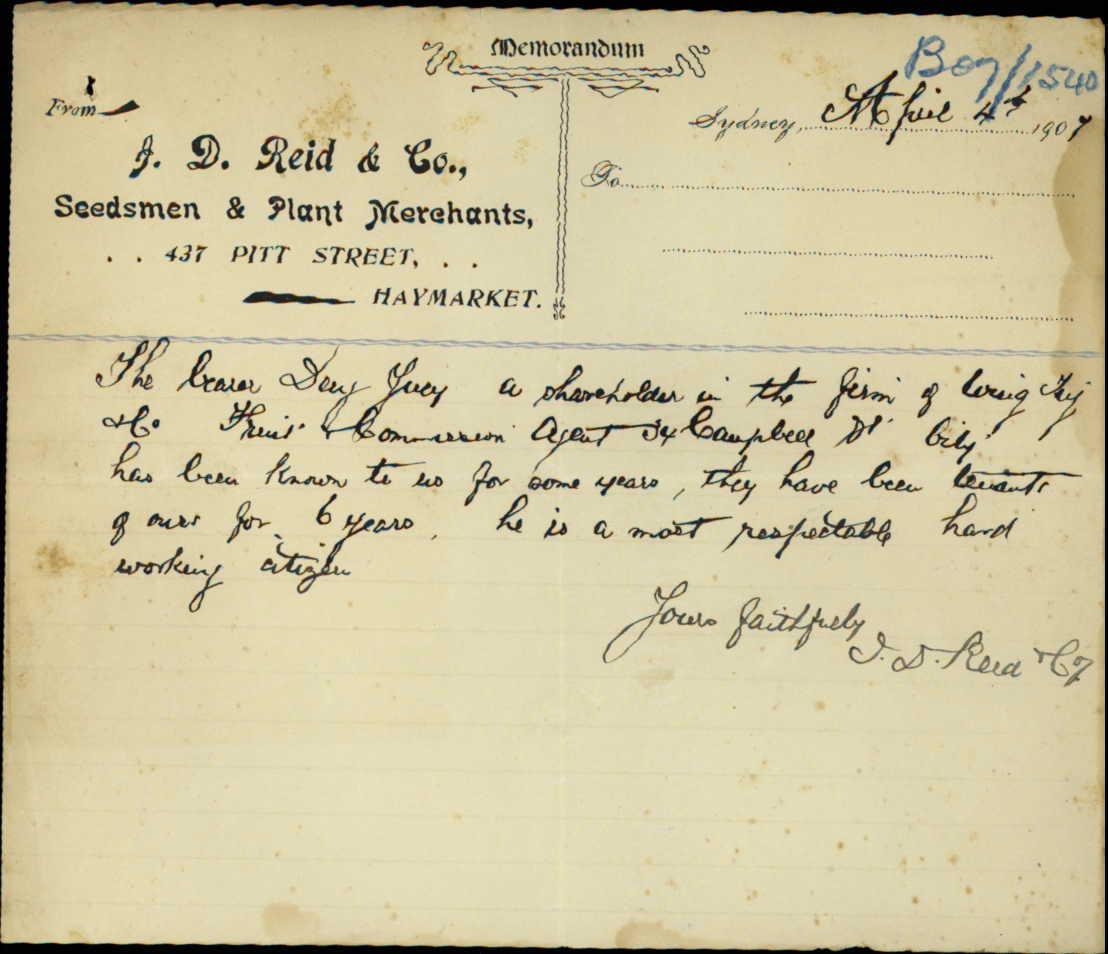 Memorandum
B07/1540
From
Sydney, April 4th 1907
J. D. Reid & Co.,
To
Seedsmen & Plant Merchants,
. . 437 PITT STREET, . .
HAYMARKET.
The bearer Deny Juey a shareholder in the firm of
& Co Fruit & Commission Agent 54 Campbell St City
has been known to us for some years, they have been tenants
of ours for 6 years, he is a most respectable hard
working citizen
Yours faithfully
J. D. Reid & Co